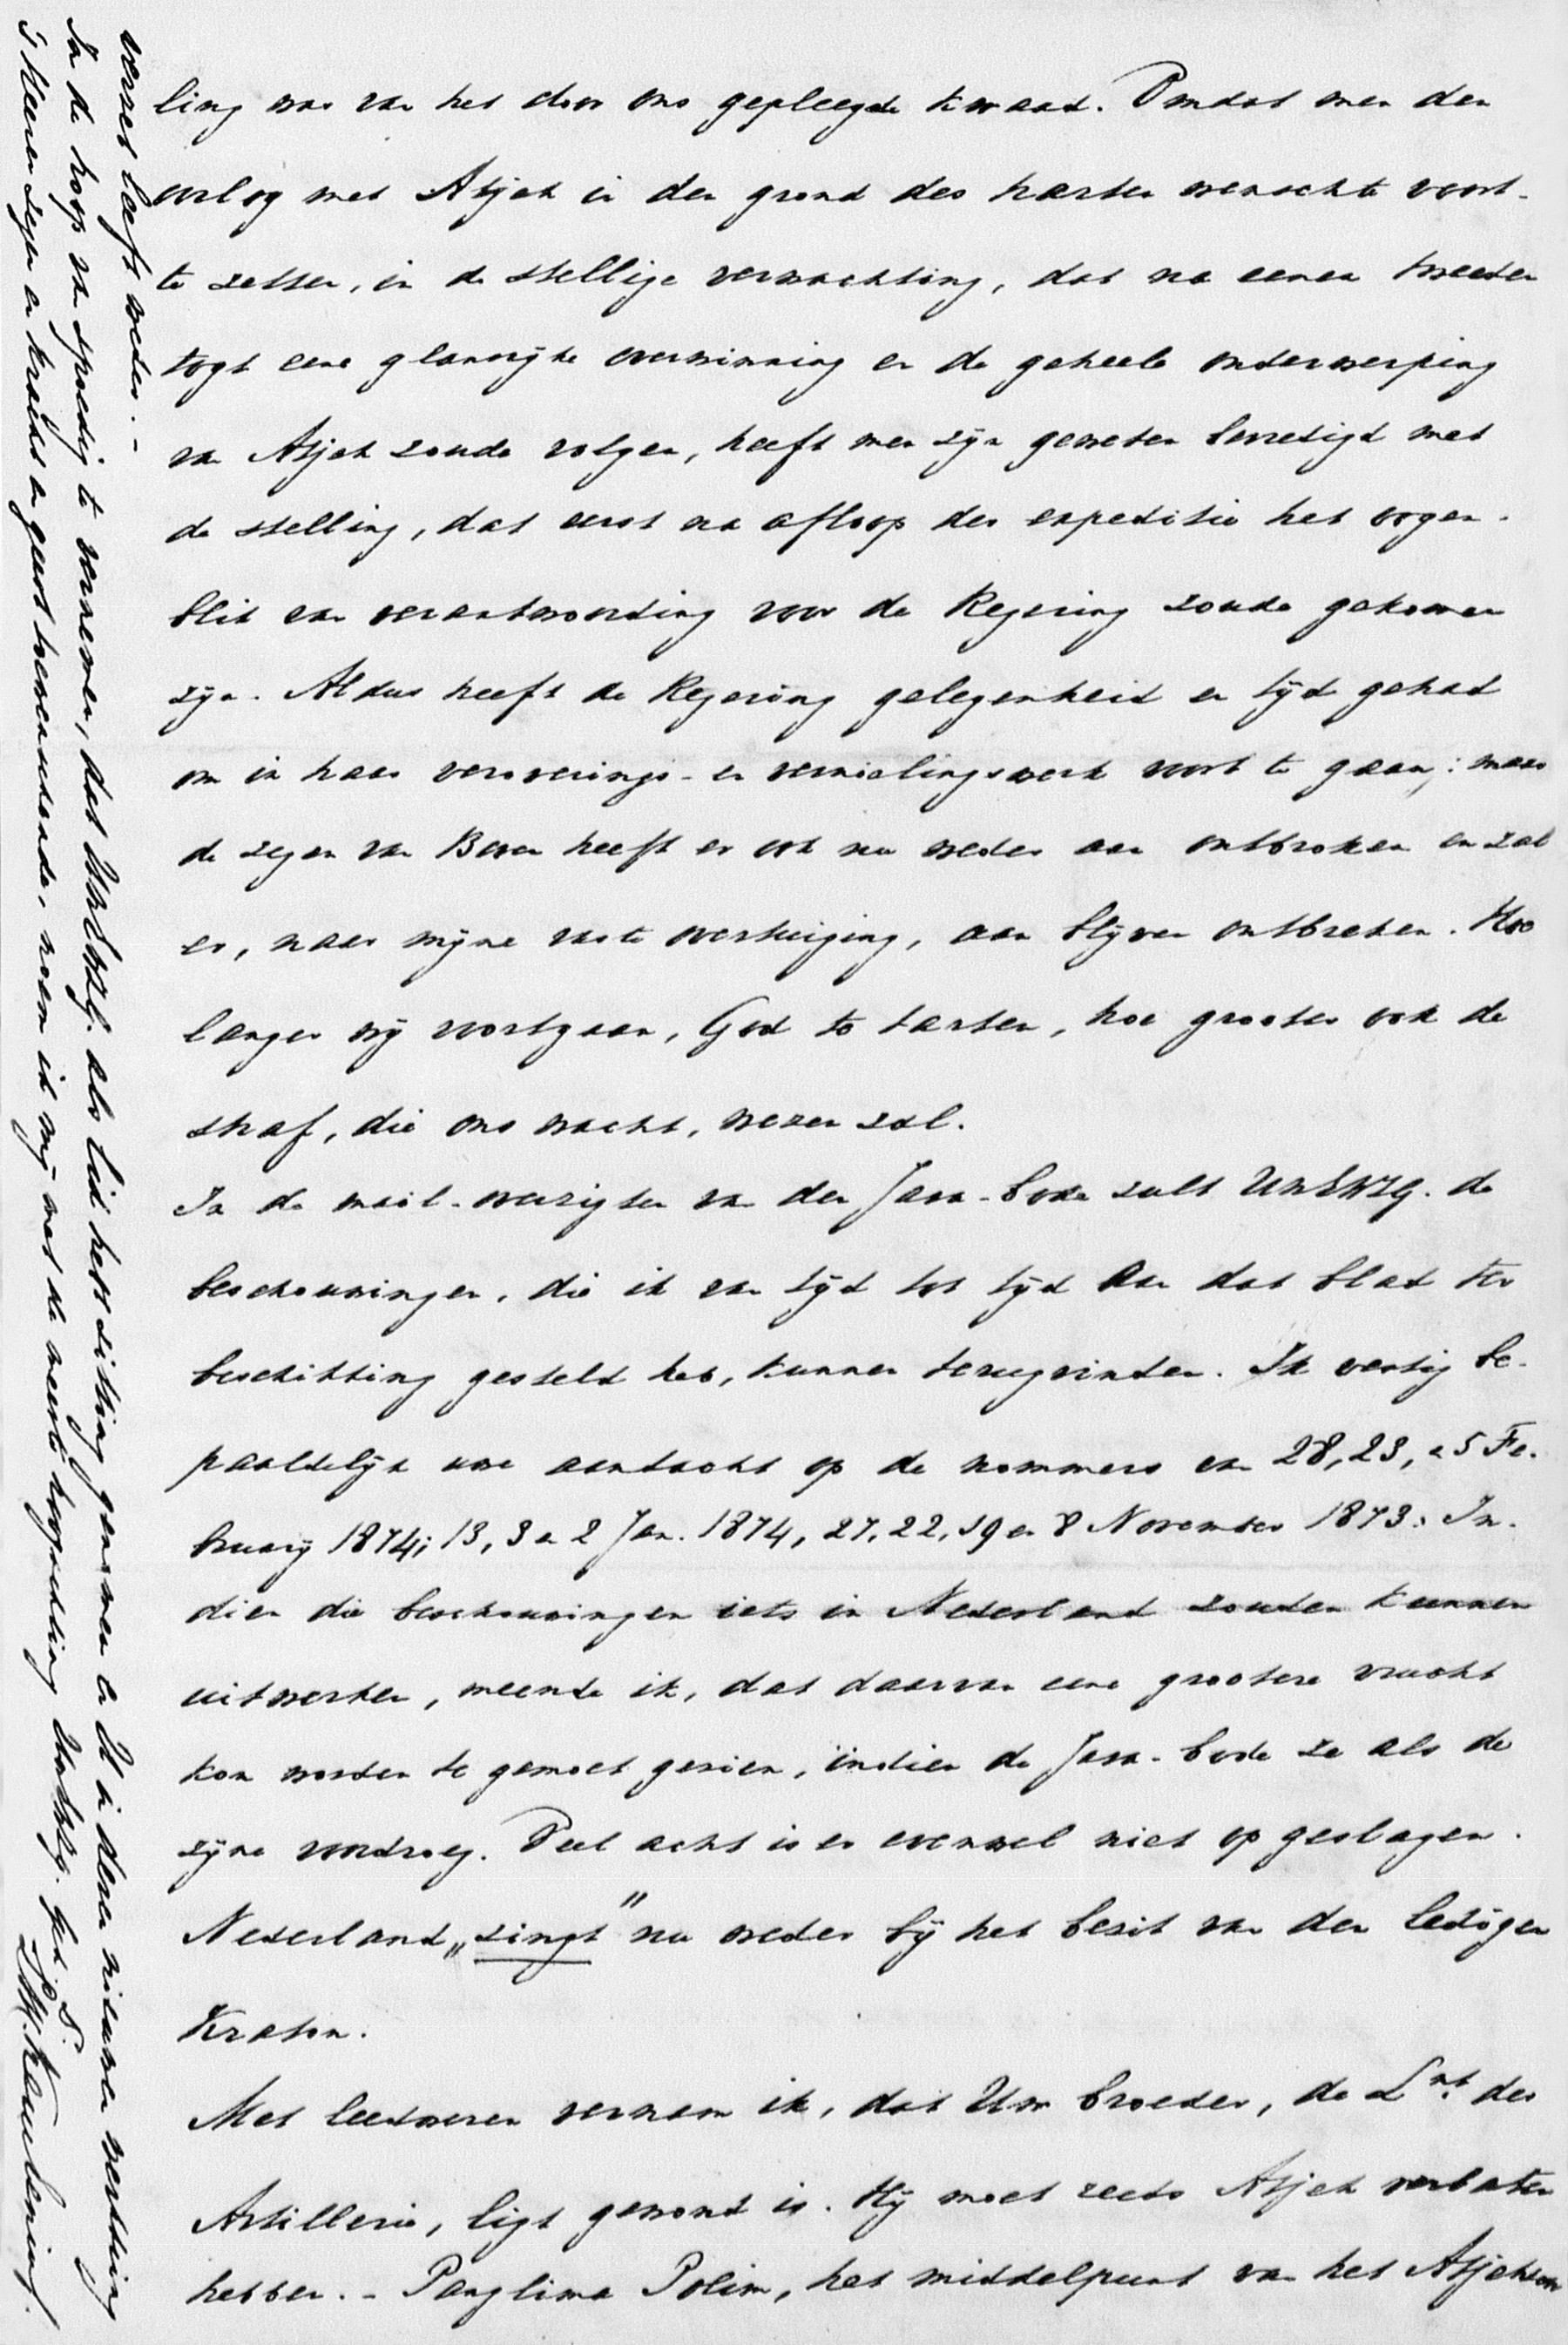 ling was van het door ons gepleegde kwaad. Omdat men den
oorlog met Atjeh in den grond des harten wenschte voort-
te zetten, in de stellige verwachting, dat na eenen tweeden
togt eene glansrijke overwinning en de geheele onderwerping
van Atjeh zoude volgen, heeft men zijn geweten bevredigd met
de stelling, dat eerst na afloop der expeditie het oogen-
blik van verantwoording voor de Regering zoude gekomen
zijn. Aldus heeft de Regering gelegenheid en tijd gehad
om in haar veroverings- en vernielingswerk voort te gaan; maar
de zegen van Boven heeft er ook nu weder aan ontbroken en zal
er, naar mijne vaste overtuiging, aan blijven ontbreken. Hoe
langer wij voortgaan, God te tarten, hoe grooter ook de
straf, die ons wacht, wezen zal.
In de mail-overzigten van den Java-bode zult UWEWZG. de
beschouwingen, die ik van tijd tot tijd aan dat blad ter
beschikking gesteld heb, kunnen terugvinden. Ik vestig be-
paaldelijk uwe aandacht op de nommers van 28, 23, 25 Fe-
bruarij 1874; 13, 3 en 2 Jan. 1874, 27, 22, 19 en 8 November 1873. In-
dien die beschouwingen iets in Nederland zouden kunnen
uitwerken, meende ik, dat daarvan eene grootere vrucht
kon worden te gemoet gezien, indien de Java-bode ze als de
zijne voordroeg. Veel acht is er evenwel niet op geslagen.
Nederland „zingt" nu weder bij het bezit van den ledigen
Kraton.
Met leedwezen vernam ik, dat Uw broeder, de Lnt. der
Artillerie, ligt gewond is. Hij moet reeds Atjeh verlaten
hebben. - Panglima Polim, het middelpunt van het Atjehsch
verzet leeft weder. -
In de hoop van spoedig te vernemen, dat UWEWZG. als lid heeft zitting genomen en U in deze nieuwe werkkring
's Heeren zegen en kracht en geest toewenschende, noem ik mij met de meeste hoogachting UWEWZG.